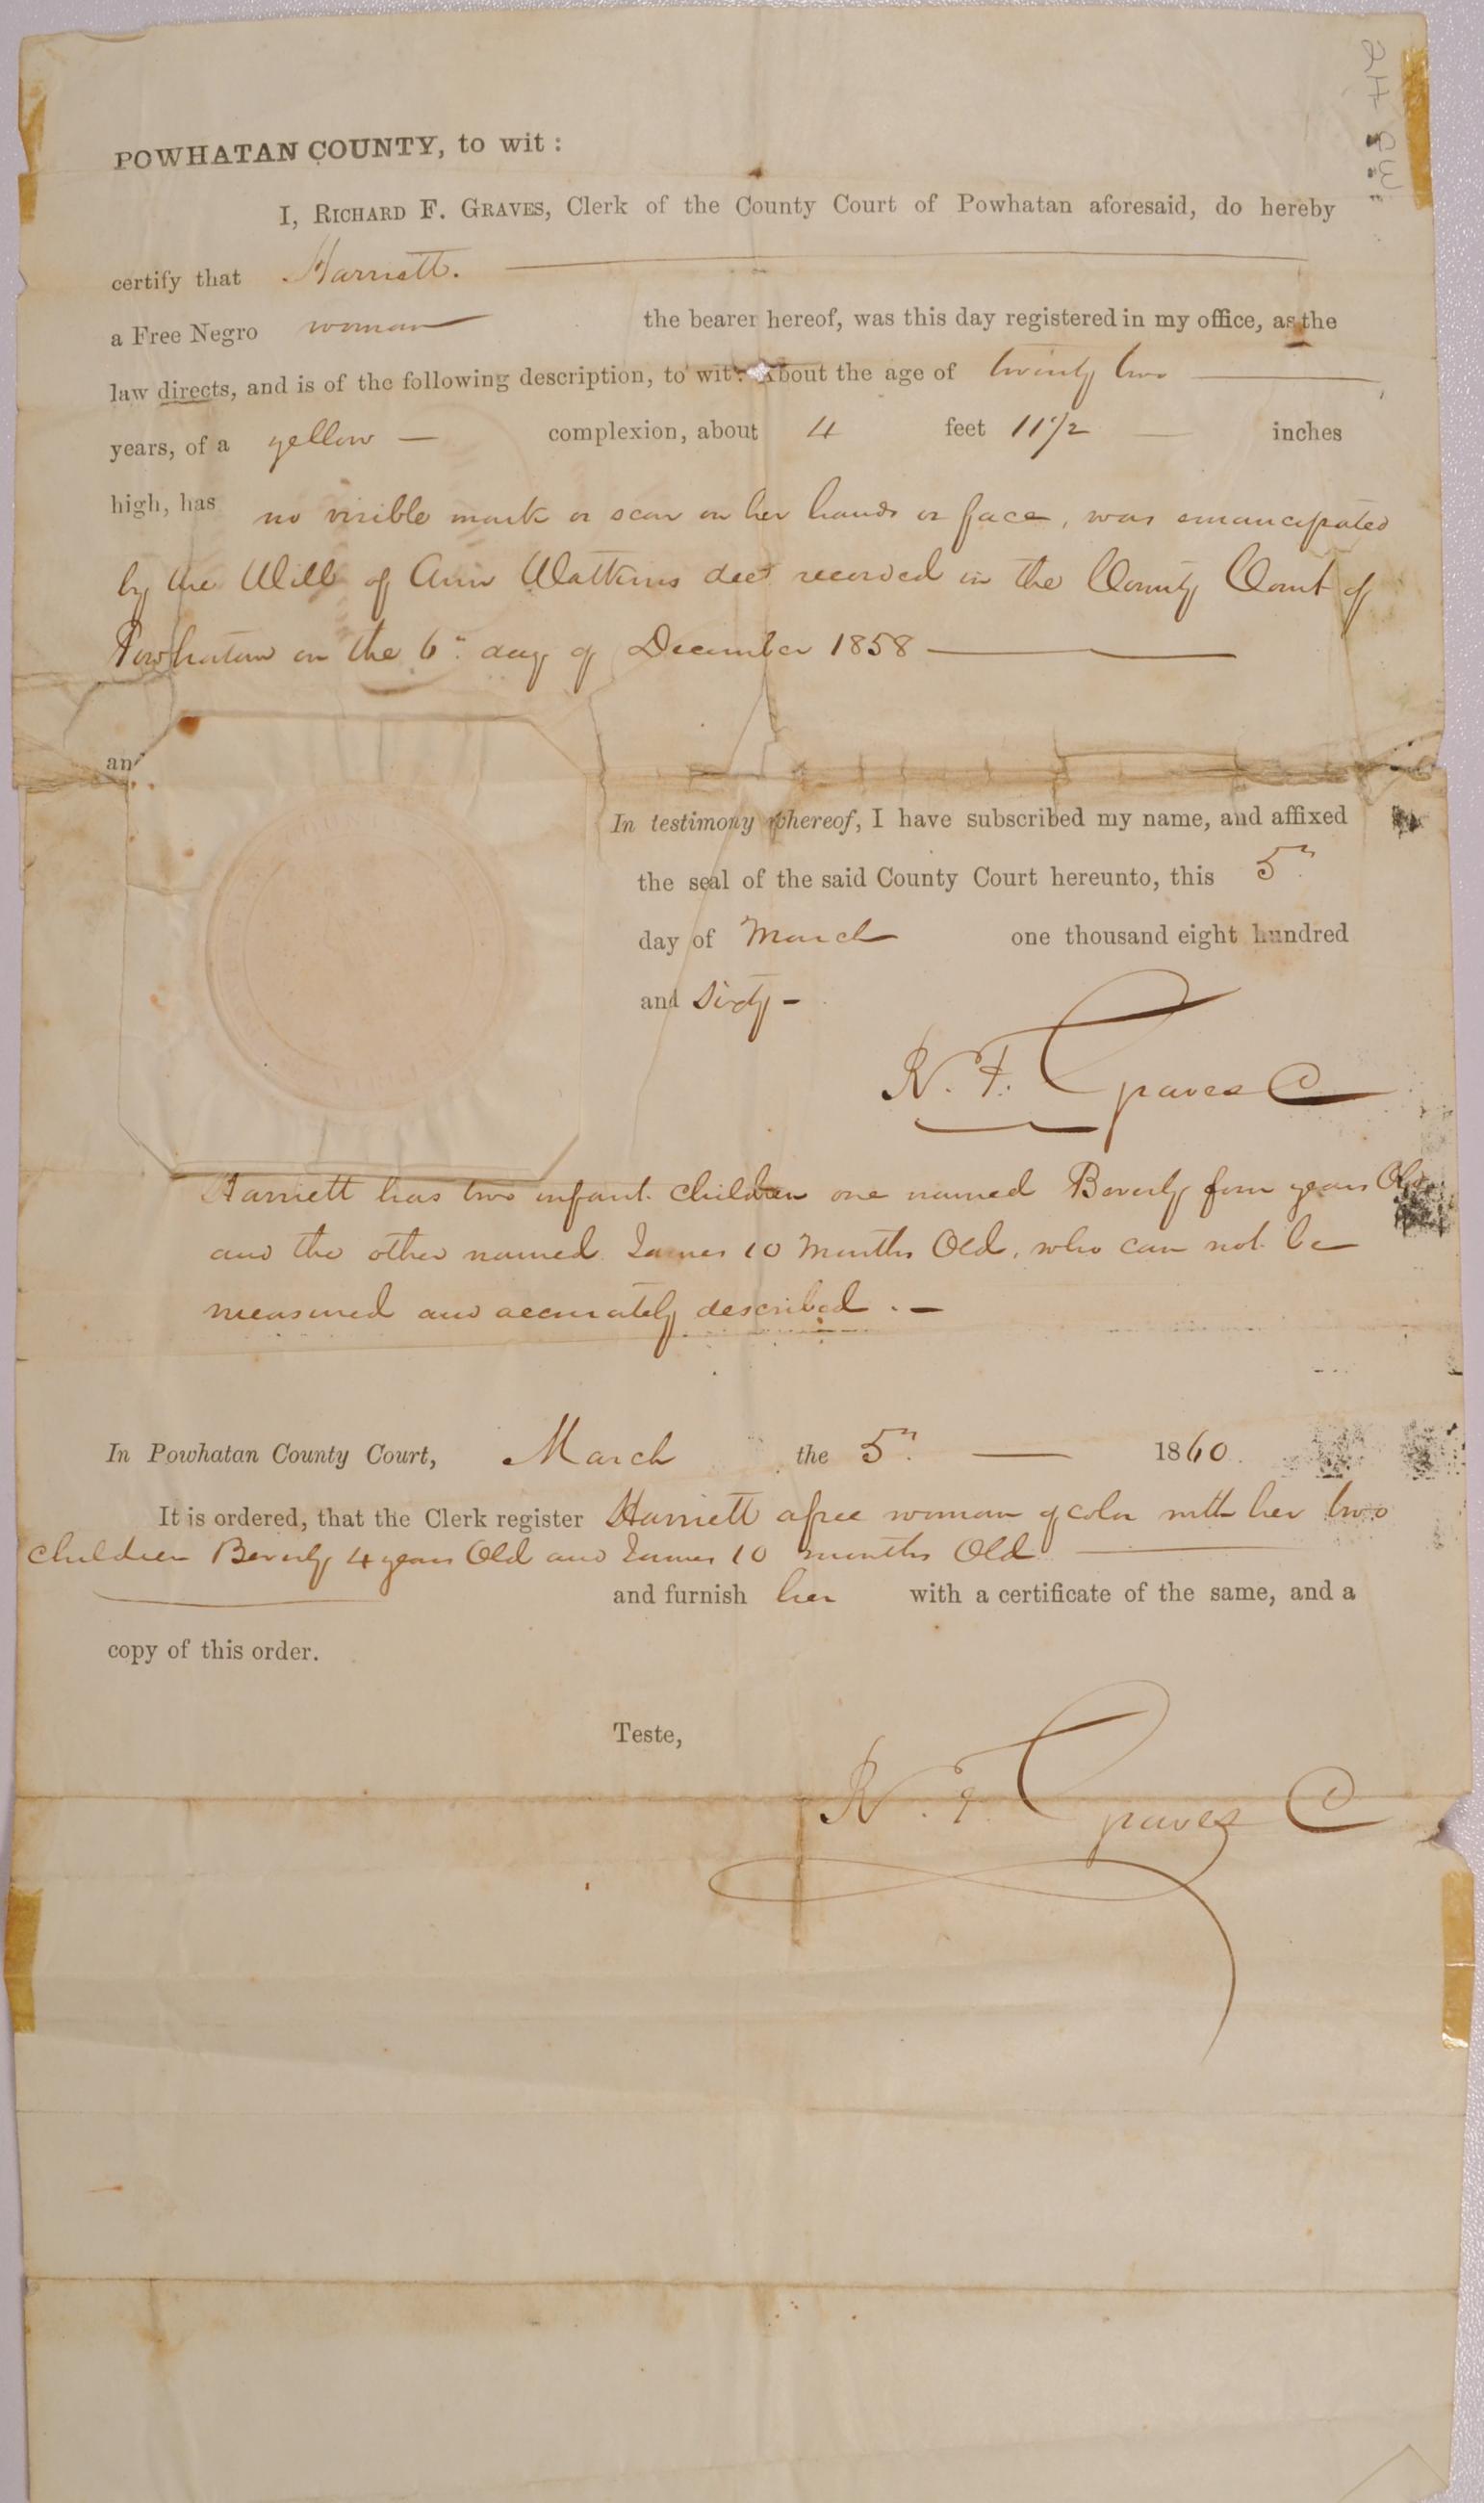 POWHATAN COUNTY, to wit:
I, RICHARD F. GRAVES, Clerk of the County Court of Powhatan aforesaid, do hereby
certify that Harriett.
a Free Negro woman the bearer hereof, was this day registered in my office, as the
law directs, and is of the following description, to wit: About the age of twenty two
years, of a yellow — complexion, about 4 feet 11 1/2 — inches
high, has no visible mark or scar on her hands or face, was emancipated
by the Will of Ann Watkins decd recorded in the County Court of
Powhatan on the 6th day of December 1858
an
In testimony whereof, I have subscribed my name, and affixed
the seal of the said County Court hereunto, this 5th
day of March one thousand eight hundred
and Sixty —
R. F. Graves C
Harriett has two infant children one named Beverly four years Old
and the other named James 10 Months Old, who can not be
measured and accurately described. —
In Powhatan County Court, March the 5th — 1860.
It is ordered, that the Clerk register Harriett a free woman of color with her two
children Beverly 4 years Old and James 10 months Old
and furnish her with a certificate of the same, and a
copy of this order.
Teste,
R. F. Graves C